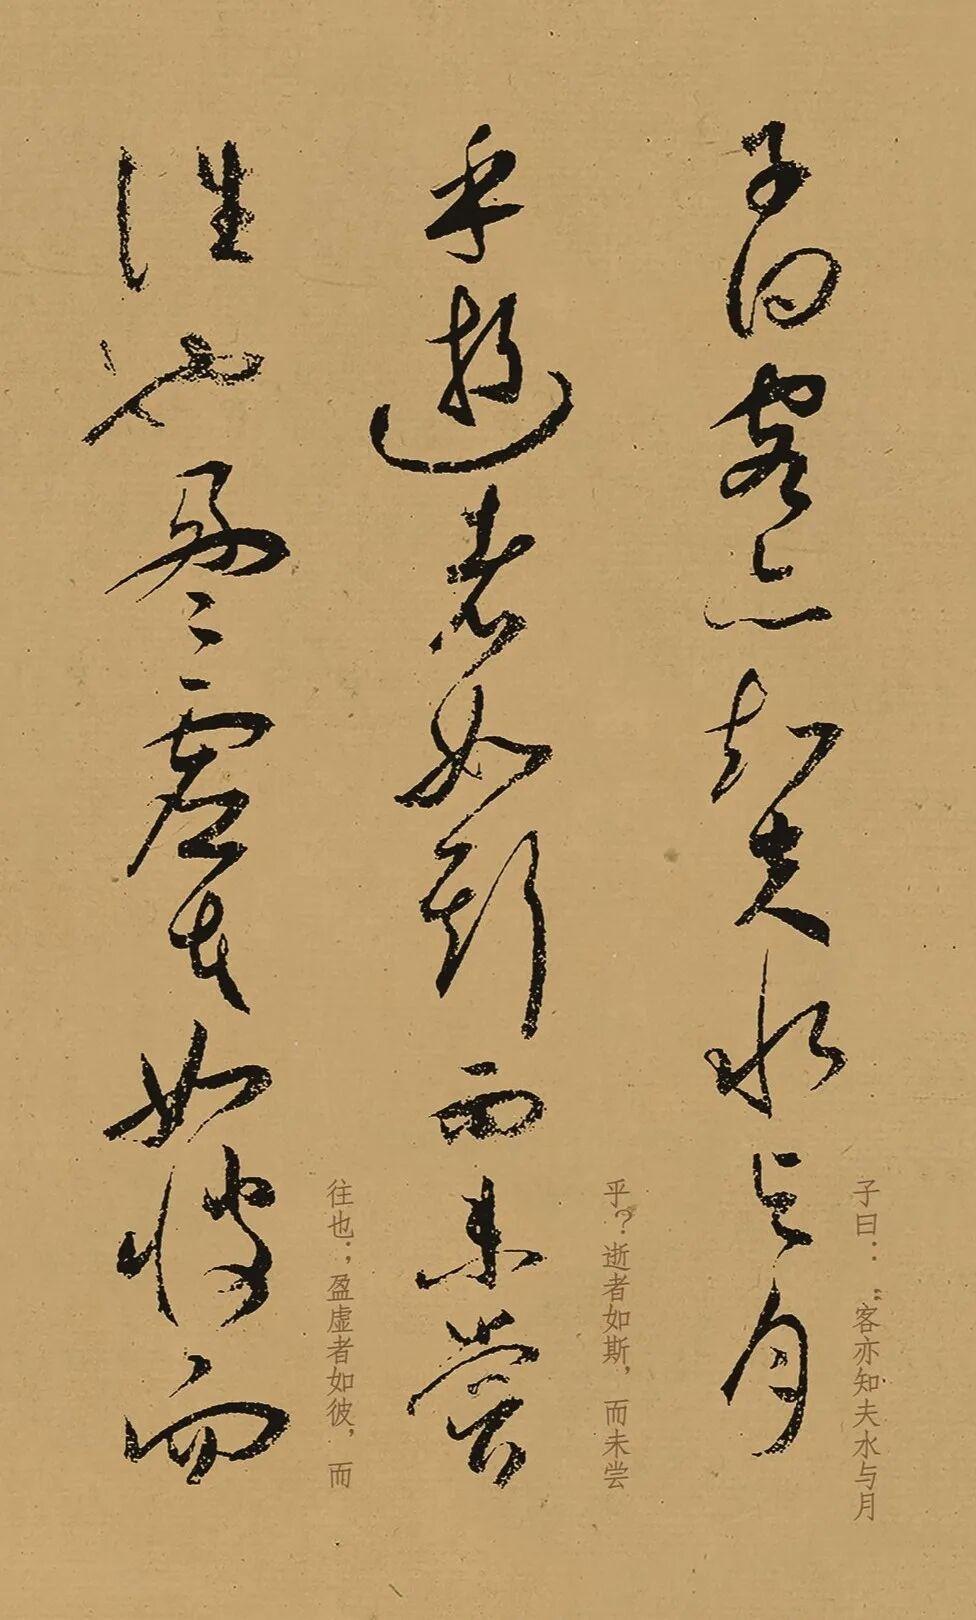 子曰客亦知夫水与月
子曰：“客亦知夫水与月
乎逝者如斯而未尝
乎？逝者如斯，而未尝
往也盈虚者如彼而
往也；盈虚者如彼，而